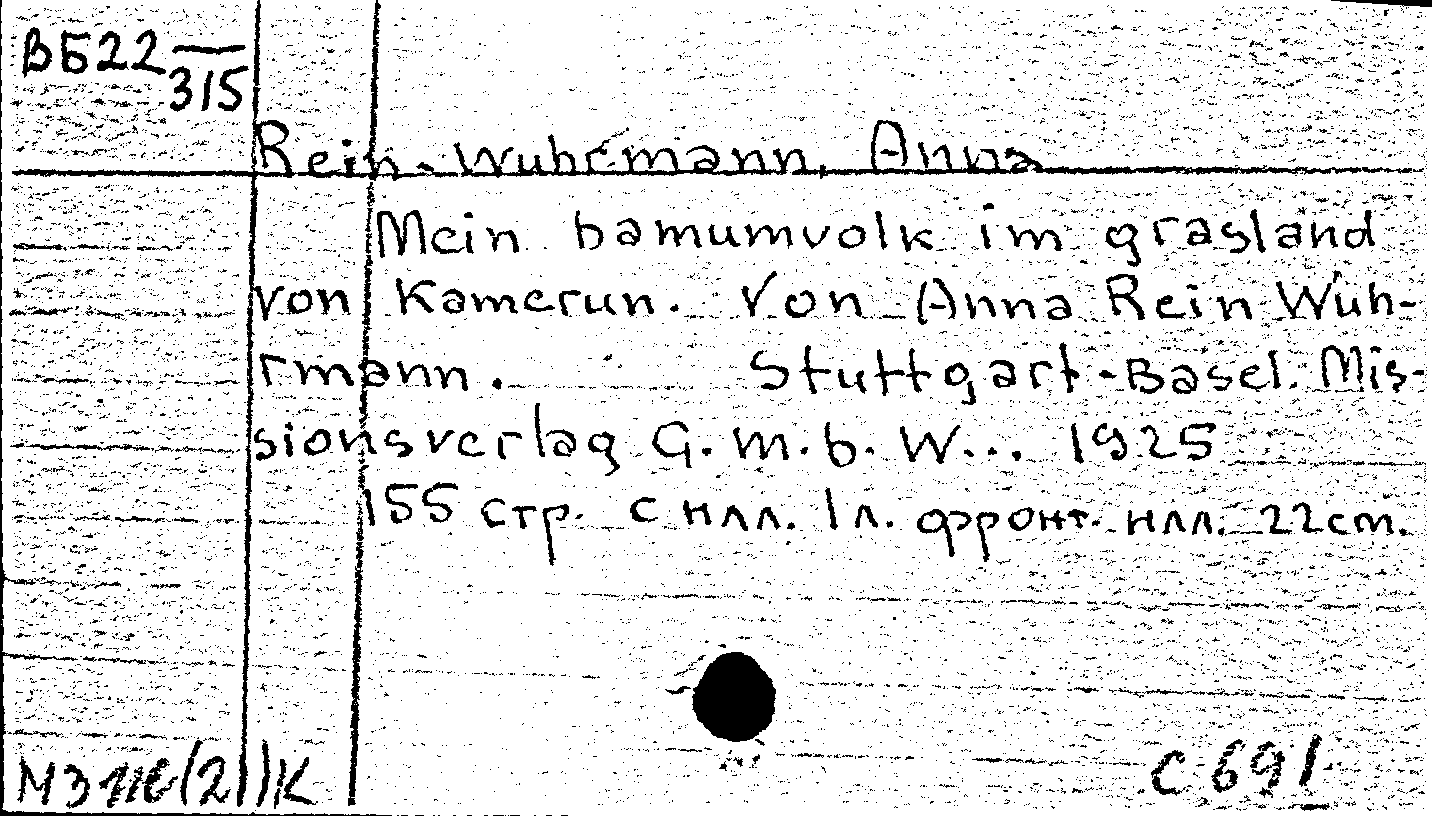 ВБ22 —
315
Rein-Wuhrmann, Anna
Mein bamumvolk im grasland
von Kamerun. Von Anna Rein Wuh-
rmann. Stuttgart-Basel. Mis-
sionsverlag G.m.b.W... 1925
155 стр. с илл. 1 л. фронт. илл. 22cm.
С 691